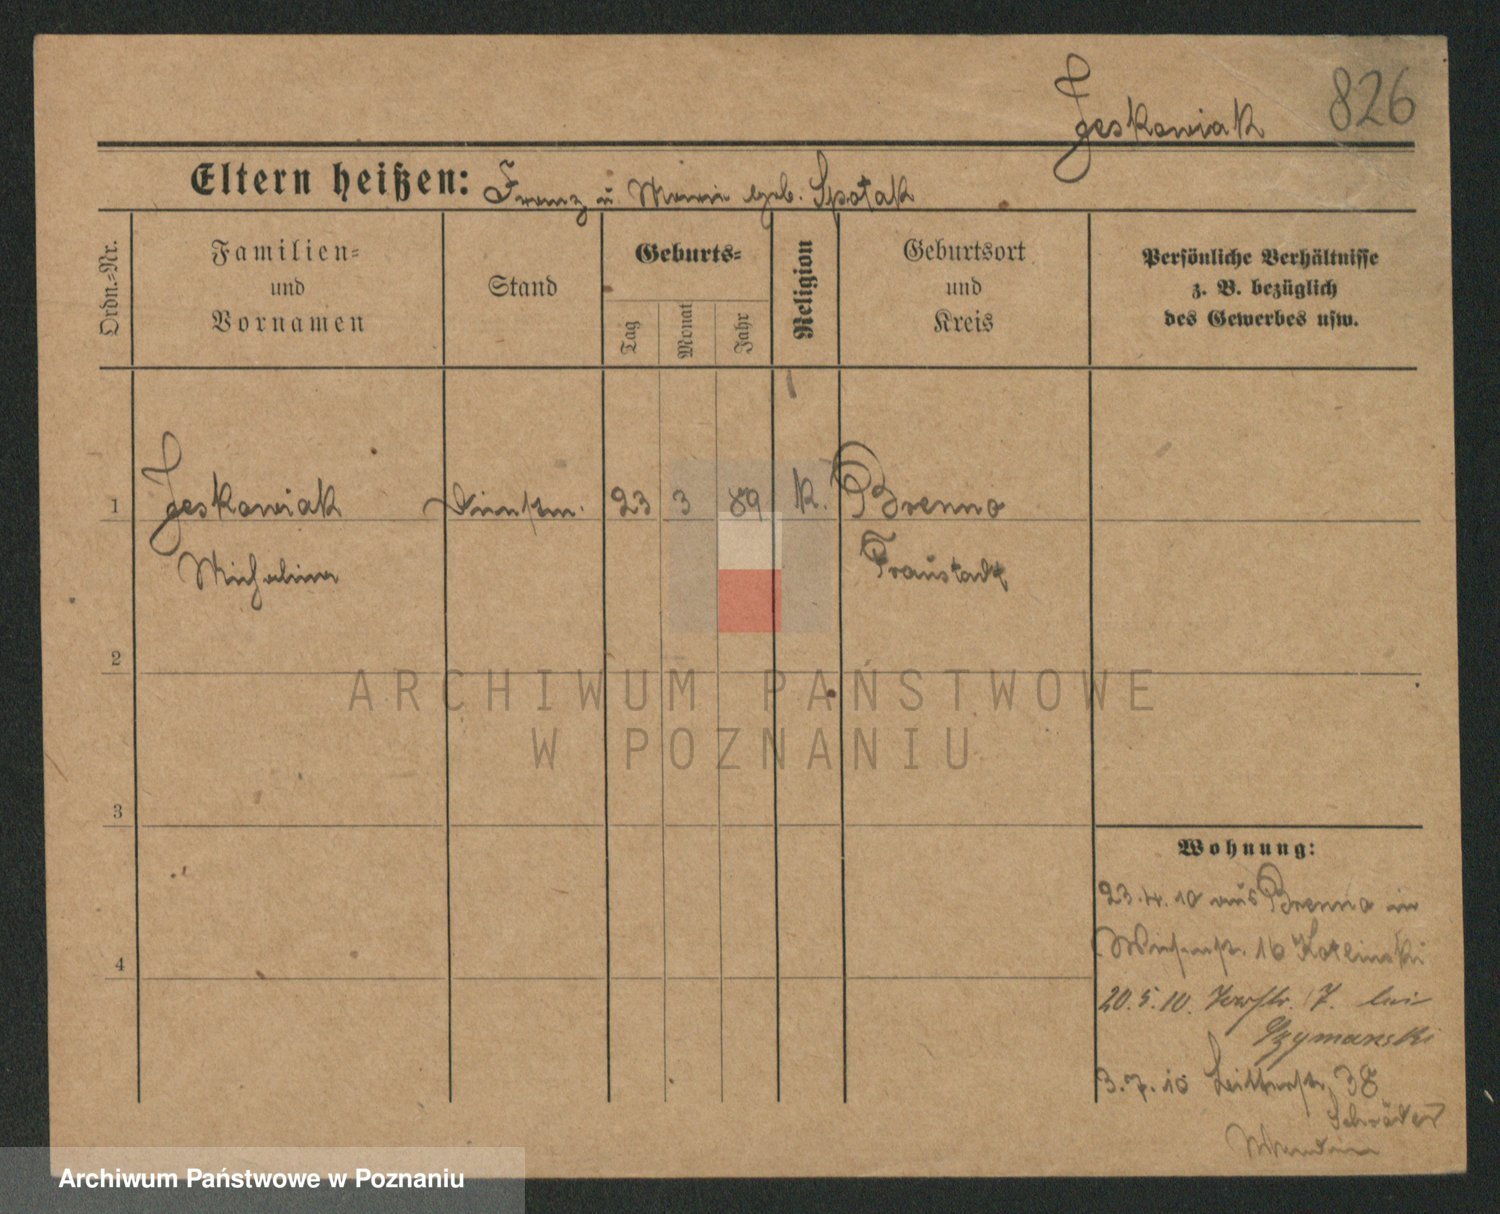 Jeskowiak 826
Eltern heißen: Franz u Marie geb. Spotak
Ordn.-Nr.
Familien-
und
Vornamen
Stand
Geburts-
Tag
Monat
Jahr
Religion
Geburtsort
und
Kreis
Persönliche Verhältnisse
z. B. bezüglich
des Gewerbes usw.
1 Jeskowiak Dienstm. 23 3 89 k. Brenno
Michalina Fraustadt
2
ARCHIWUM PAŃSTWOWE
W POZNANIU
3
Wohnung:
23.4.10 aus Brenno in
Wiesenstr. 16 Kotlinski
4
20.5.10. 7. bei
Szymanski
3.7.10 38
Schröder
Archiwum Państwowe w Poznaniu